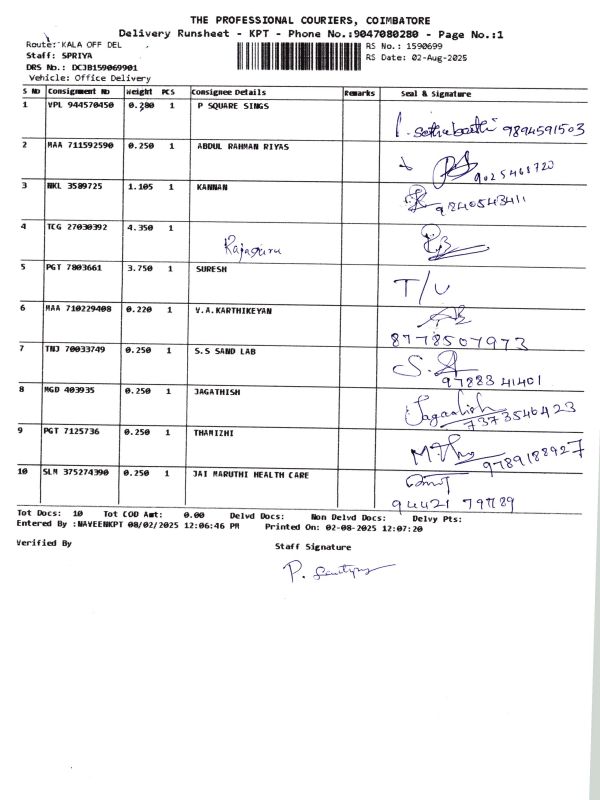 THE PROFESSIONAL COURIERS, COIMBATORE
Delivery Runsheet - KPT - Phone No.:9047080280 - Page No.:1
Route: KALA OFF DEL
RS No.: 1590699
Staff: SPRIYA
RS Date: 02-Aug-2025
DRS No.: DCJB159069901
Vehicle: Office Delivery
S No Consignment No Weight PCS Consignee Details Remarks Seal & Signature
1 VPL 944570450 0.380 1 P SQUARE SINGS
9894591503
2 MAA 711592590 0.250 1 ABDUL RAHMAN RIYAS
3 NKL 3589725 1.105 1 KANNAN
9840543411
4 TCG 27030392 4.350 1 Rajaguru
5 PGT 7803661 3.750 1 SURESH T/U
6 MAA 710229408 0.220 1 V.A.KARTHIKEYAN
8778507973
7 TNJ 70033749 0.250 1 S.S SAND LAB
97883 41401
8 MGD 403935 0.250 1 JAGATHISH Jagadish
7373546423
9 PGT 7125736 0.250 1 THAMIZHI
9789188927
10 SLM 375274390 0.250 1 JAI MARUTHI HEALTH CARE
Tot Docs: 10 Tot COD Amt: 0.00 Delvd Docs: Non Delvd Docs: Delvy Pts:
Entered By :NAVEENKPT 08/02/2025 12:06:46 PM Printed On: 02-08-2025 12:07:20
Verified By Staff Signature